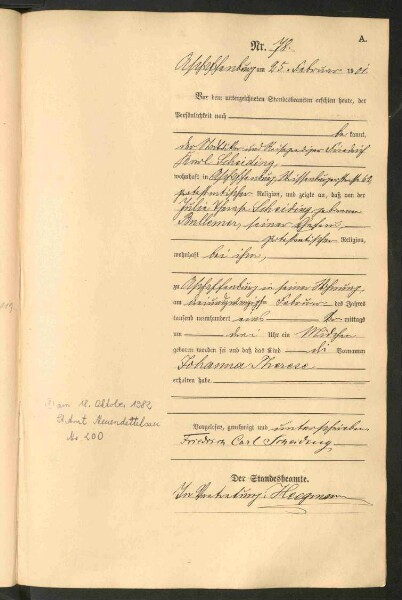 A.
Nr. 78.
Aschaffenburg am 25. Februar 1901.
Vor dem unterzeichneten Standesbeamten erschien heute, der
Persönlichkeit nach
be kannt,
der Friedrich
Karl Scheiding,
wohnhaft in Aschaffenburg, 
protestantischer Religion, und zeigte an, daß von der
Julie Scheiding, geborenen
seiner Ehefrau,
protestantischer Religion,
wohnhaft bei ihm,
zu Aschaffenburg in seiner Wohnung,
am Februar des Jahres
tausend neunhundert eins Vormittags
um drei Uhr ein Mädchen
geboren worden sei und daß das Kind die Vornamen
Johanna Therese
erhalten habe
Vorgelesen, genehmigt und unterschrieben
Friedrich Carl Scheiding
Der Standesbeamte.
In Vertretung:
am 18. Oktober 1982
St.Amt Neuendettelsau
Nr. 200